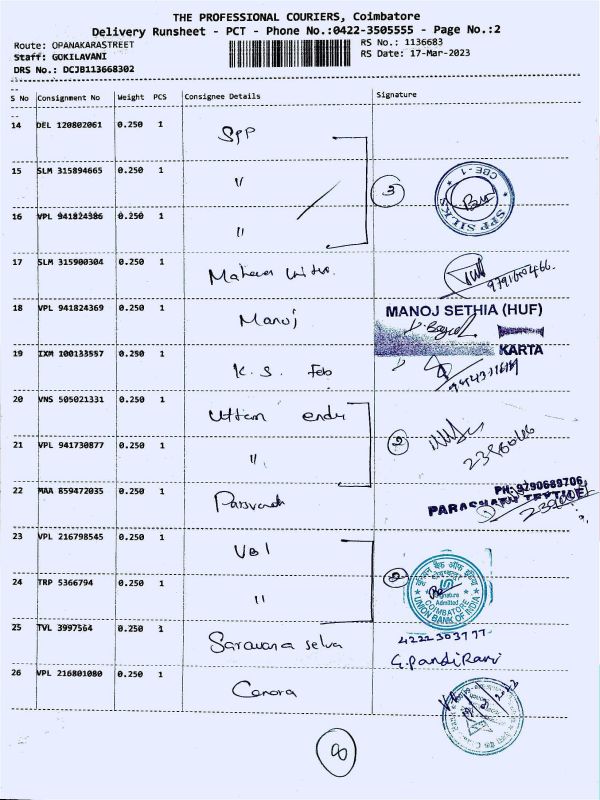 THE PROFESSIONAL COURIERS, Coimbatore
Delivery Runsheet - PCT - Phone No.:0422-3505555 - Page No.:2
Route: OPANAKARASTREET
RS No.: 1136683
Staff: GOKILAVANI
RS Date: 17-Mar-2023
DRS No.: DCJB113668302
S No Consignment No Weight PCS Consignee Details Signature
14 DEL 120802061 0.250 1 SPP
15 SLM 315894665 0.250 1 "
3
SPP SILKS CBE-1
16 VPL 941824386 0.250 1 "
17 SLM 315900304 0.250 1
18 VPL 941824369 0.250 1 Manoj
MANOJ SETHIA (HUF)
KARTA
19 IXM 100133557 0.250 1 K. S. Feb
20 VNS 505021331 0.250 1 Uttam
2
21 VPL 941730877 0.250 1 "
22 MAA 859472035 0.250 1
PH: 9790689706,
23 VPL 216798545 0.250 1 UBI
2
24 TRP 5366794 0.250 1 "
Signature
Admitted
COIMBATORE
UNION BANK OF INDIA
25 TVL 3997564 0.250 1 Saravana selva
4222303777
G.PandiRani
26 VPL 216801080 0.250 1 Canara